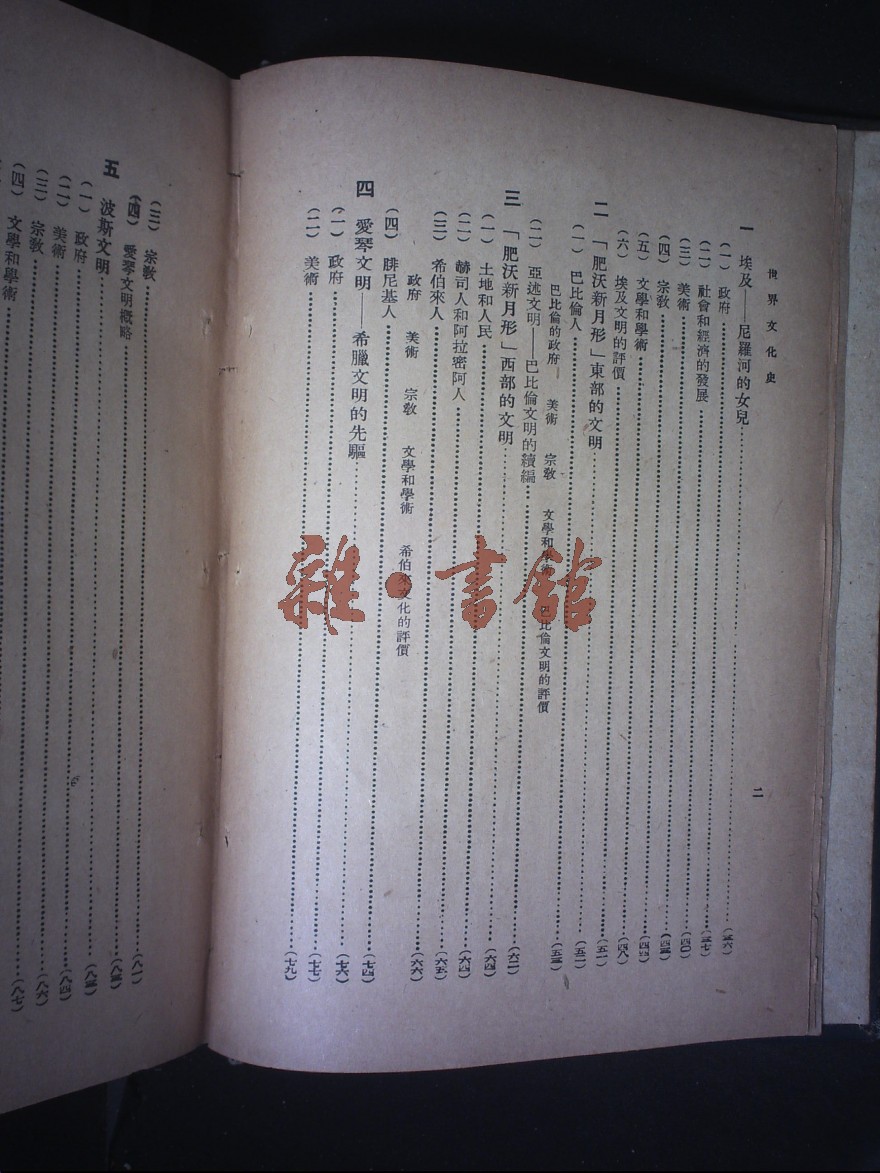 世界文化史
二
一　埃及——尼羅河的女兒
（一）政府（三六）
（二）社會和經濟的發展（三七）
（三）美術（四〇）
（四）宗教（四三）
（五）文學和學術（四四）
（六）埃及文明的評價（四八）
二　「肥沃新月形」東部的文明（五一）
（一）巴比倫人（五二）
巴比倫的政府　美術　宗教　文學和學術　巴比倫文明的評價
（二）亞述文明——巴比倫文明的續編（五三）
三　「肥沃新月形」西部的文明（六二）
（一）土地和人民（六四）
（二）赫司人和阿拉密阿人（六四）
（三）希伯來人（六五）
政府　美術　宗教　文學和學術　希伯來文化的評價
（四）腓尼基人（六六）
四　愛琴文明——希臘文明的先驅（七四）
（一）政府（七六）
（二）美術（七七）
（七九）
（三）宗教（八一）
（四）愛琴文明概略
五　波斯文明（八三）
（一）政府（八三）
（二）美術（八四）
（三）宗教（八六）
（四）文學和學術（八七）
雜·書館